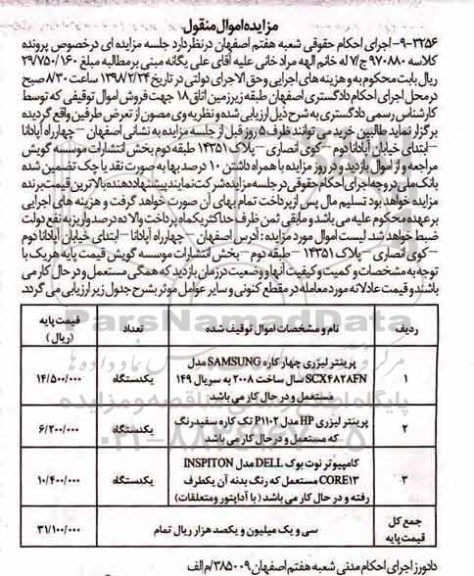 مزایده اموال منقول
۹-۳۲۵۶- اجرای احکام حقوقی شعبه هفتم اصفهان در نظر دارد جلسه مزایده ای در خصوص پرونده
کلاسه ۹۷۰۸۸۰ ج/۷ له خانم الهه مراد خانی علیه آقای علی یگانه مبنی بر مطالبه مبلغ ۲۹/۷۵۰/۱۶۰
ریال بابت محکوم به و هزینه های اجرایی و حق الاجرای دولتی در تاریخ ۱۳۹۸/۲/۲۴ ساعت ۸:۳۰ صبح
در محل اجرای احکام دادگستری اصفهان طبقه زیرزمین اتاق ۱۸ جهت فروش اموال توقیفی که توسط
کارشناس رسمی دادگستری به شرح ذیل ارزیابی شده و نظریه وی مصون از تعرض طرفین واقع گردیده
برگزار نماید طالبین خرید می توانند ظرف ۵ روز قبل از جلسه مزایده به نشانی اصفهان – چهارراه آپادانا
– ابتدای خیابان آپادانا دوم – کوی انصاری – پلاک ۱۴۳۵۱ طبقه دوم بخش انتشارات موسسه گویش
مراجعه و از اموال بازدید و در روز مزایده با همراه داشتن ۱۰ درصد بها به صورت نقد یا چک تضمین شده
بانک ملی در وجه اجرای احکام حقوقی در جلسه مزایده شرکت نمایند پیشنهاد دهنده بالاترین قیمت برنده
مزایده خواهد بود تسلیم مال پس از پرداخت تمام بهای آن صورت خواهد گرفت و هزینه های اجرایی
بر عهده محکوم علیه می باشد و مابقی ثمن ظرف حداکثر یکماه پرداخت والا ده درصد واریز به نفع دولت
ضبط خواهد شد. لیست اموال مورد مزایده : آدرس اصفهان – چهارراه آپادانا – ابتدای خیابان آپادانا دوم
– کوی انصاری – پلاک ۱۴۳۵۱ – طبقه دوم – بخش انتشارات موسسه گویش قیمت پایه هر یک با
توجه به مشخصات و کمیت و کیفیت آنها و وضعیت در زمان بازدید که همگی مستعمل و در حال کار می
باشند و قیمت عادلانه مورد معامله در مقطع کنونی و سایر عوامل موثر بشرح جدول زیر ارزیابی می گردد.
ردیف نام و مشخصات اموال توقیف شده تعداد قیمت پایه (ریال)
۱ پرینتر لیزری چهار کاره SAMSUNG مدل
SCX۴۸۲۸FN سال ساخت ۲۰۰۸ به سریال ۱۴۹
مستعمل و در حال کار می باشد یکدستگاه ۱۴/۵۰۰/۰۰۰
۲ پرینتر لیزری HP مدل P۱۱۰۲ تک کاره سفیدرنگ
که مستعمل و در حال کار می باشد یکدستگاه ۶/۲۰۰/۰۰۰
۳ کامپیوتر نوت بوک DELL مدل INSPITON
CORE۱۳ مستعمل که رنگ بدنه آن یکطرف
رفته و در حال کار می باشد ( با آداپتور و متعلقات) یکدستگاه ۱۰/۴۰۰/۰۰۰
جمع کل قیمت پایه سی و یک میلیون و یکصد هزار ریال تمام ۳۱/۱۰۰/۰۰۰
دادورز اجرای احکام مدنی شعبه هفتم اصفهان ۳۸۵۰۰۹/م الف
ParsNamadData